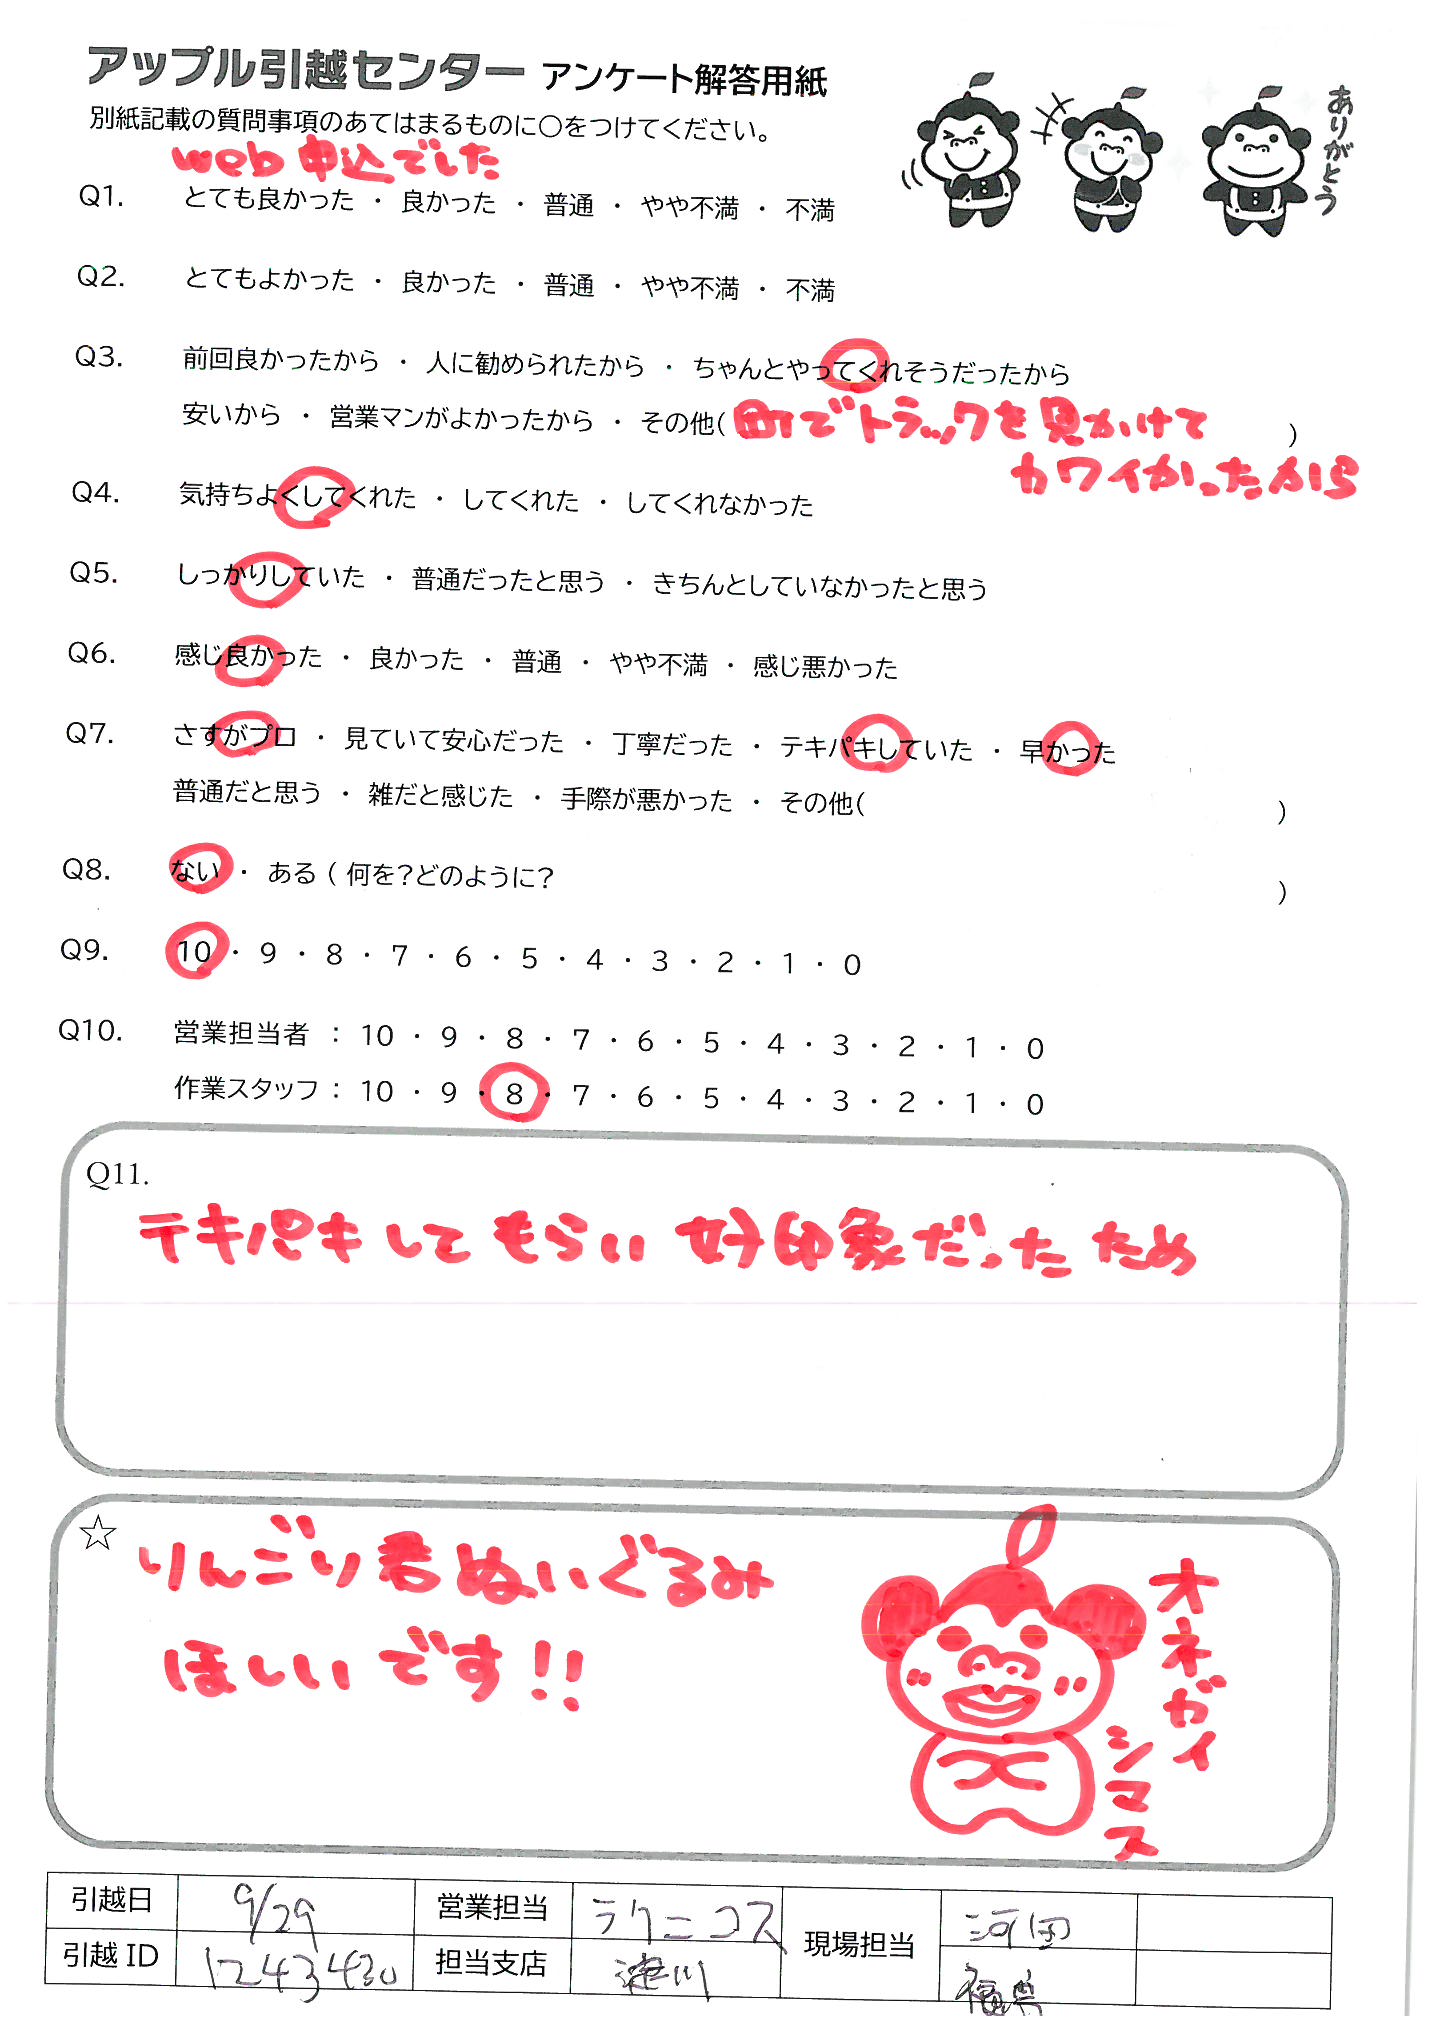 アップル引越センター アンケート解答用紙
別紙記載の質問事項のあてはまるものに〇をつけてください。
ありがとう
web 申込でした
Q1. とても良かった ・ 良かった ・ 普通 ・ やや不満 ・ 不満
Q2. とてもよかった ・ 良かった ・ 普通 ・ やや不満 ・ 不満
Q3. 前回良かったから ・ 人に勧められたから ・ ちゃんとやってくれそうだったから
安いから ・ 営業マンがよかったから ・ その他( 町でトラックを見かけて )
カワイかったから
Q4. 気持ちよくしてくれた ・ してくれた ・ してくれなかった
Q5. しっかりしていた ・ 普通だったと思う ・ きちんとしていなかったと思う
Q6. 感じ良かった ・ 良かった ・ 普通 ・ やや不満 ・ 感じ悪かった
Q7. さすがプロ ・ 見ていて安心だった ・ 丁寧だった ・ テキパキしていた ・ 早かった
普通だと思う ・ 雑だと感じた ・ 手際が悪かった ・ その他( )
Q8. ない ・ ある ( 何を?どのように? )
Q9. 10 ・ 9 ・ 8 ・ 7 ・ 6 ・ 5 ・ 4 ・ 3 ・ 2 ・ 1 ・ 0
Q10. 営業担当者 : 10 ・ 9 ・ 8 ・ 7 ・ 6 ・ 5 ・ 4 ・ 3 ・ 2 ・ 1 ・ 0
作業スタッフ : 10 ・ 9 ・ 8 ・ 7 ・ 6 ・ 5 ・ 4 ・ 3 ・ 2 ・ 1 ・ 0
Q11.
テキパキしてもらい 好印象だった ため
☆ りんごり君ぬいぐるみ
ほしいです!!
オネガイ
シマス
引越日 9/29 営業担当 ラクニコス 現場担当 河田
引越 ID 1243430 担当支店 港川